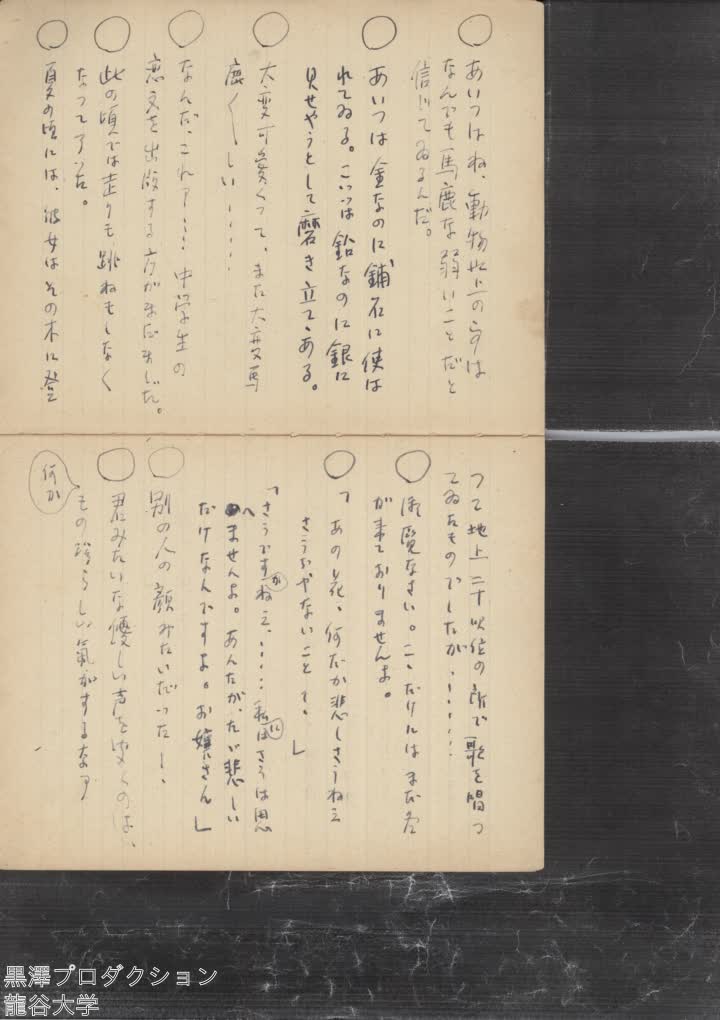 ○ あいつはね、動物以上のものは
なんでも馬鹿な弱いことだと
信じてゐるんだ。
○ あいつは金なのに鋪石に使は
れてゐる。こいつは鉛なのに銀に
見せやうとして磨き立てゝある。
○ 大変可愛くって、また大変馬
鹿〱しい……
○ なんだ、これァ…… 中学生の
恋文を出版する方がまだましだ。
○ 此の頃では走りも跳ねもしなく
なってアった。
○ 夏の頃には、彼女はその木に登
って地上二十 以位の所で歌を唱つ
てゐたものでしたが、……
○ 御覧なさい。こゝだけにはまだ冬
が来ておりませんよ。
○ 「あの花、何だか悲しさうねえ
さうぢやないこと？」
「さうですかねえ、…… 私にはさうは思
へませんよ。あんたが、たゞ悲しい
だけなんですよ。お嬢さん」
○ 別の人の顔みたいだった——、
○ 君みたいな優しい声をきくのは、
何か
もの珍らしい氣がするなア
黒澤プロダクション
龍谷大学